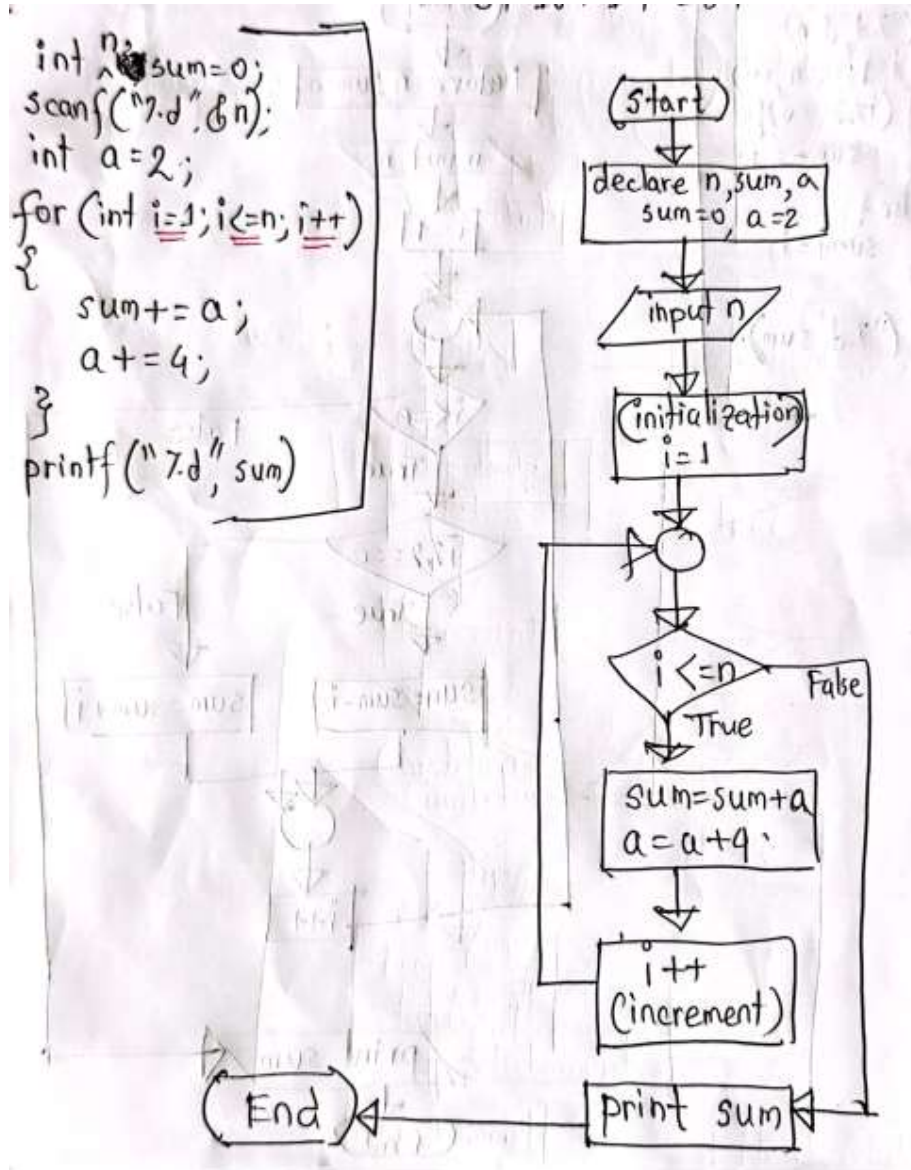 int n, sum=0;
scanf("%d",&n);
int a=2;
for (int i=1; i<=n; i++)
{
sum+= a;
a+=4;
}
printf("%d", sum)
Start
declare n, sum, a
sum=0, a=2
input n
(initialization)
i=1
i <=n
False
True
sum=sum+a
a=a+4
i++
(increment)
print sum
End